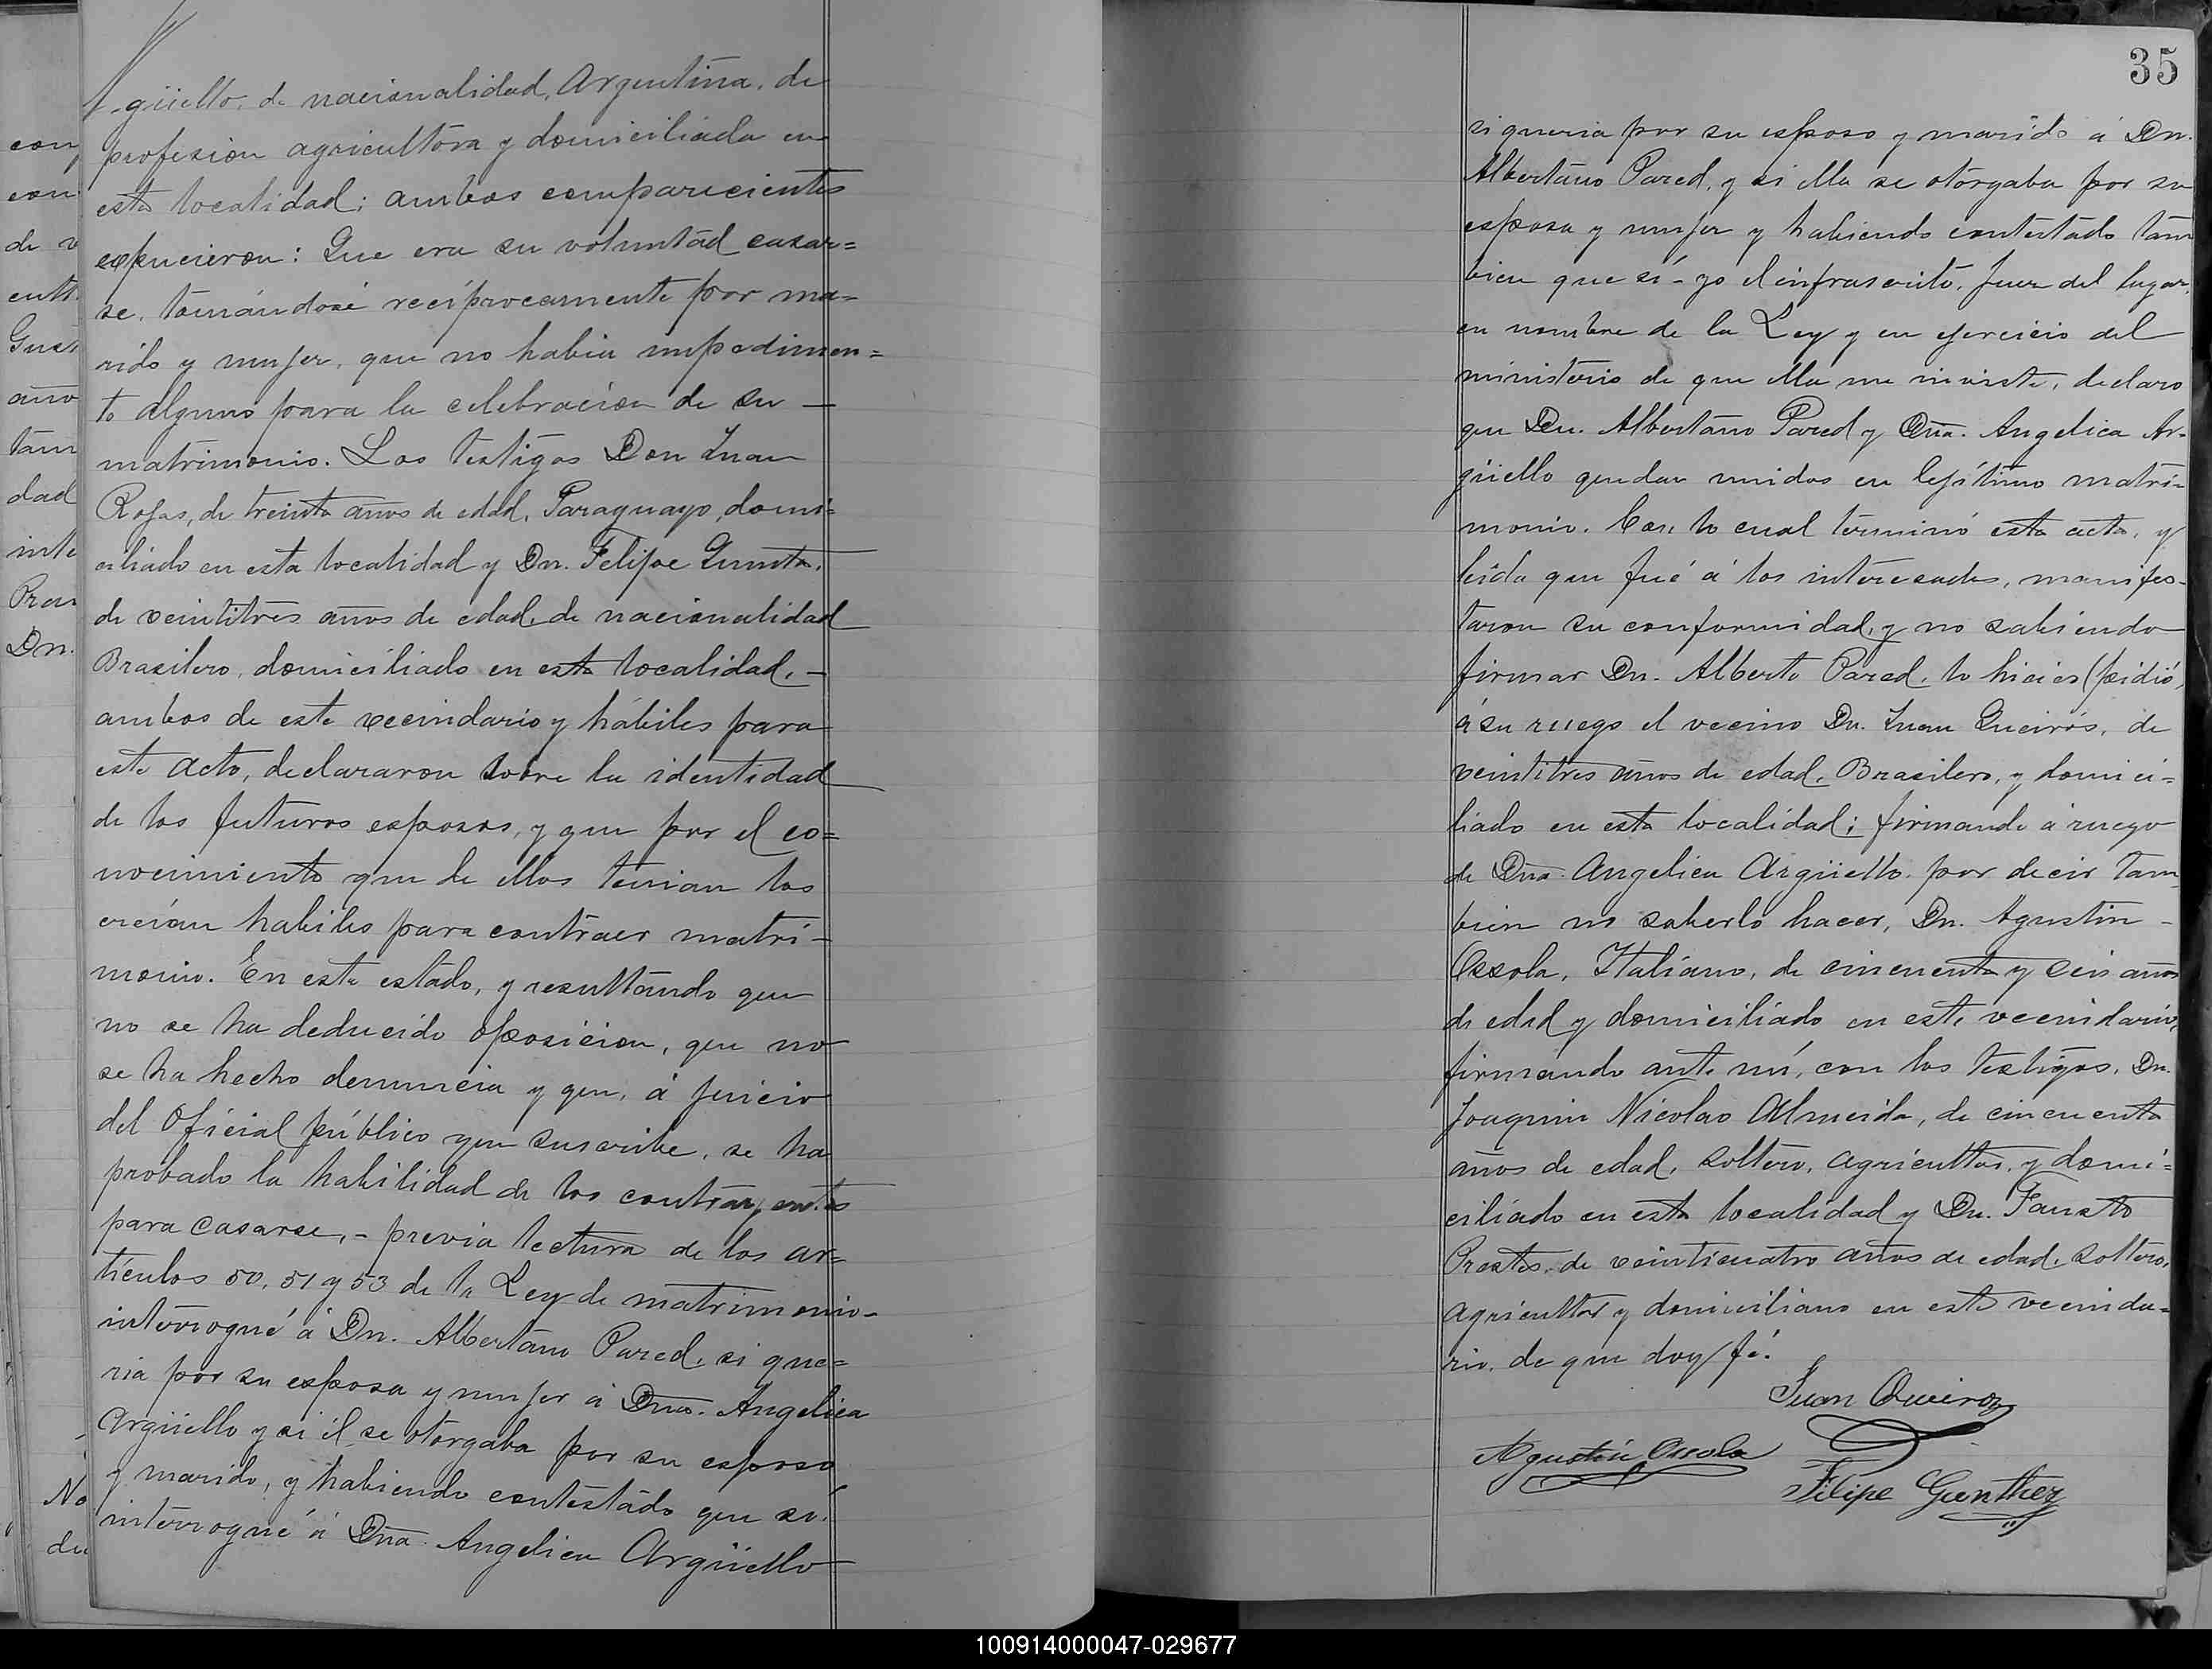 con
con
de v
ents
Gus
año
tam
dad
inte
Pres
Dn.
No
de
güello, de nacionalidad, Argentina, de
profesion agricultora y domiciliada en
esta localidad; ambos comparecientes
expucieron: Que era su voluntad casar=
se, tomándose recíprocamente por ma=
rido y mujer, que no habia impedimen=
to alguno para la celebracion de su —
matrimonio. Los testigos Don Juan
Rojas, de treinta años de edad, Paraguayo, domi=
ciliado en esta localidad y Dn. Felipe
de veintitres años de edad, de nacionalidad
Brasilero, domiciliado en esta localidad, —
ambos de este vecindario y hábiles para
este acto, declararon sobre la identidad
de los futuros esposos, y que por el co=
nocimiento que de ellos tenian los
creían habiles para contraer matri-
monio. En este estado, y resultando que
no se ha deducido oposicion, que no
se ha hecho denuncia y que, á juicio
del Oficial público que suscribe, se ha
probado la habilidad de los contrayentes
para casarse, - previa lectura de los ar=
tículos 50, 51 y 53 de la Ley de matrimonio-
interrogué á Dn. Albertano Pared, si que=
ria por su esposa y mujer á Dña. Angelica
Argüello y si él se otorgaba por su esposo
y marido, y habiendo contestado que sí,
interrogué á Dña. Angelica Argüello
35
si queria por su esposo y marido á Dn.
Albertano Pared, y si ella se otorgaba por su
esposa y mujer y habiendo contestado tam
bien que sí - yo el infrascrito, Juez del lugar,
en nombre de la Ley y en ejercicio del
ministerio de que ella me inviste, declaro
que Dn. Albertano Pared y Dña. Angelica Ar-
güello quedan unidos en lejítimo matri-
monio. Con lo cual terminó esta acta, y
leída que fué á los interesados, manifes-
taron su conformidad, y no sabiendo
firmar Dn. Alberto Pared, lo hicies (pidió,
á su ruego el vecino Dn. Juan Queirós, de
veintitres años de edad, Brasilero, y domici=
liado en esta localidad; firmando á ruego
de Dña. Angelica Argüello, por decir tam
bien no saberlo hacer, Dn. Agustin -
Ossola, Italiano, de cincuenta y seis años
de edad y domiciliado en este vecindario,
firmando ante mí, con los testigos, Dn.
Joaquin Nicolao Almeida, de cincuenta
años de edad, soltero, agricultor, y domi=
ciliado en esta localidad y Dn. Fausto
Prestes, de veinticuatro años de edad, soltero,
agricultor y domiciliano en este vecinda=
rio, de que doy fé.
Juan Queiroz
Agustin Ossola
Felipe Gunther
100914000047-029677